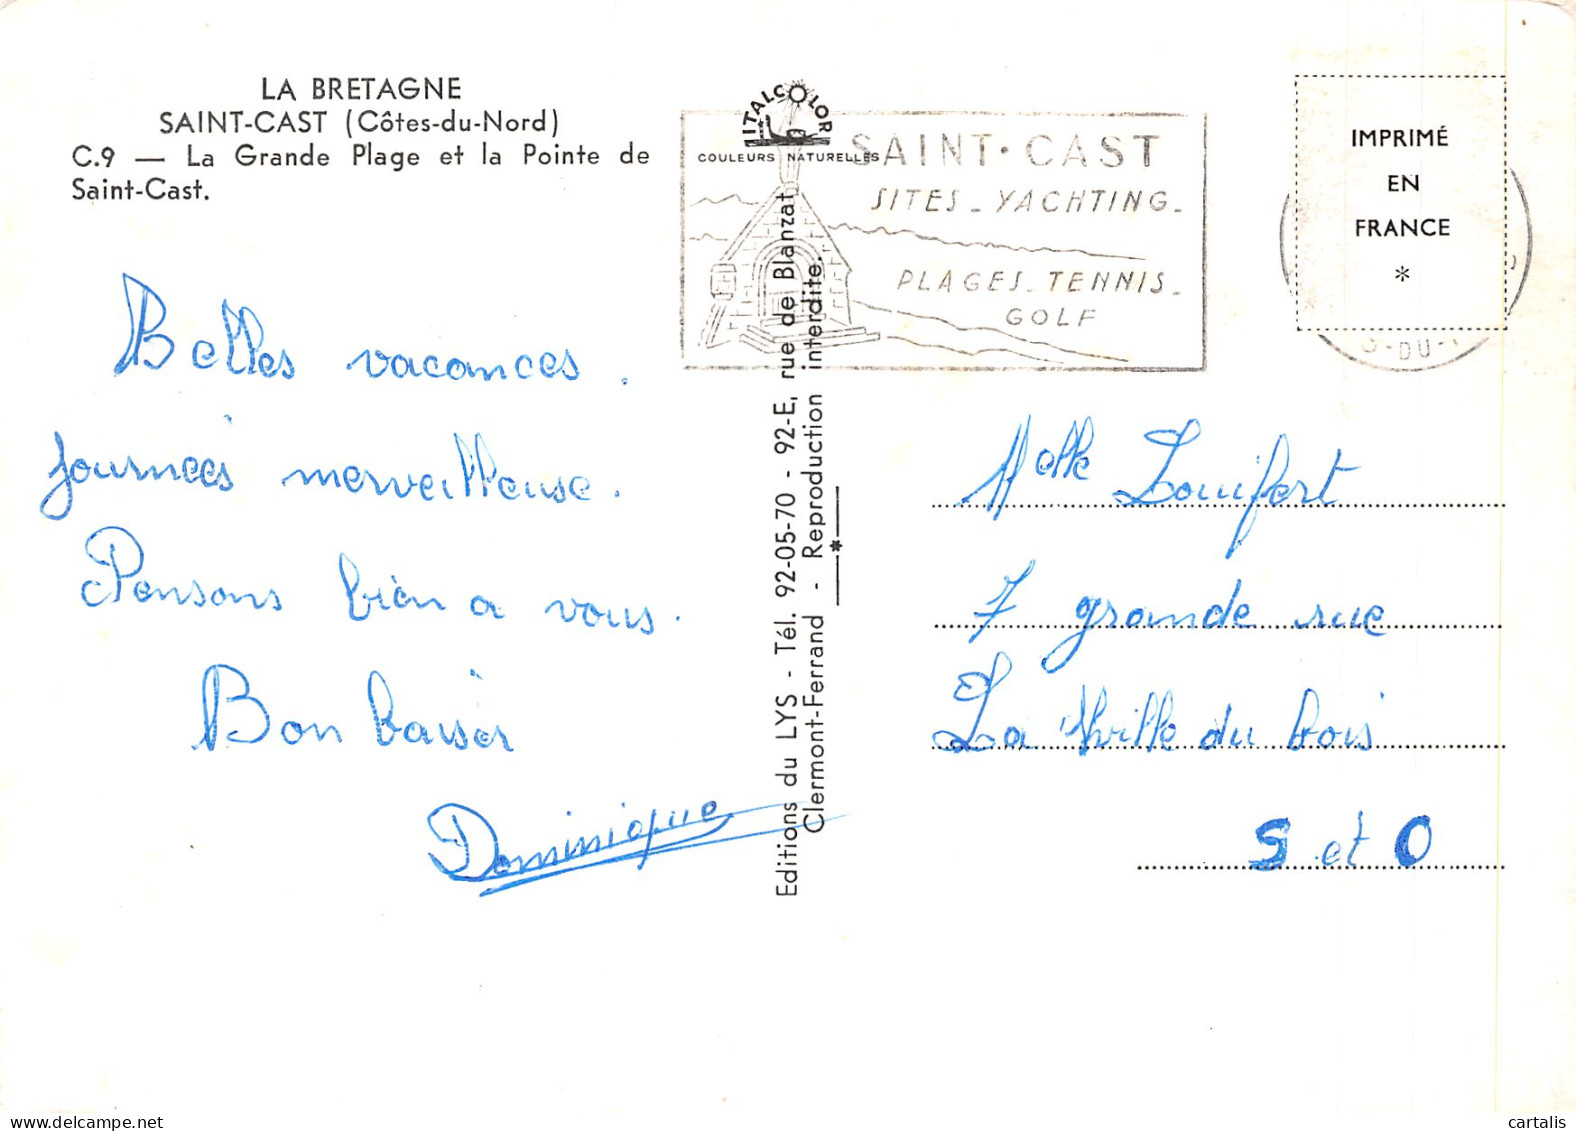 LA BRETAGNE
SAINT-CAST (Côtes-du-Nord)
C.9 — La Grande Plage et la Pointe de
Saint-Cast.
Belles vacances.
journées merveilleuse.
Pensons bien a vous.
Bon baiser
Dominique
ITALCOLOR
COULEURS NATURELLES
SAINT-CAST
SITES - YACHTING -
PLAGES - TENNIS -
GOLF
Editions du LYS - Tél. 92-05-70 - 92-E, rue de Blanzat
Clermont-Ferrand - Reproduction interdite.
IMPRIMÉ
EN
FRANCE
*
-DU-
Melle Louifert
7 grande rue
La Ville du bois
S et O
delcampe.net
cartalis